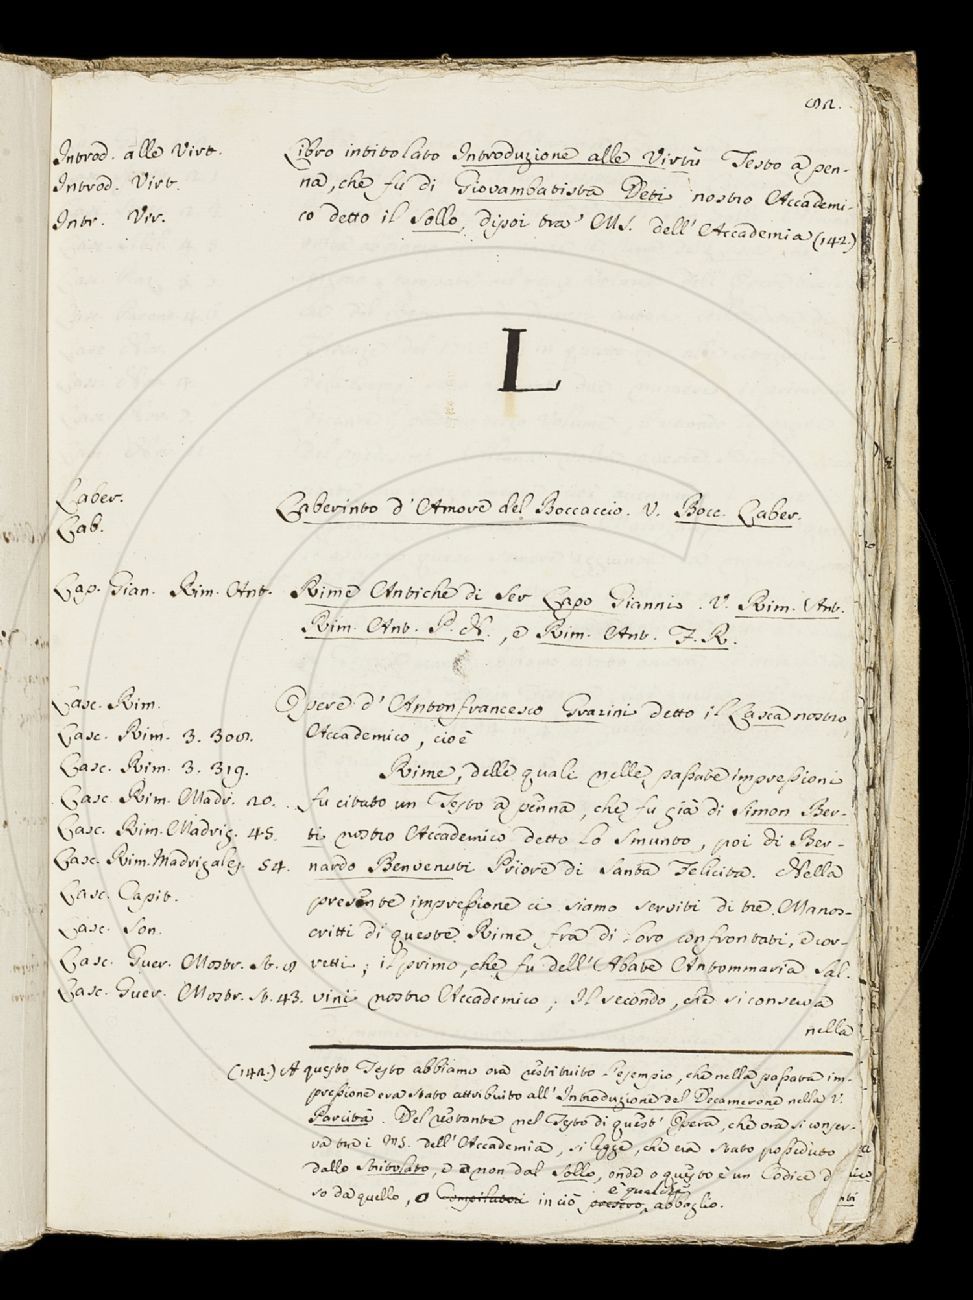 92.
Introd. alle Virt. Libro intitolato Introduzione alle Virtù Testo a pen-
Introd. Virt. na, che fu di Giovambatista Deti nostro Accademi-
Intr. Vir. co detto il Sollo, dipoi tra' MS. dell'Accademia (142.)
L
Laber. Laberinto d'Amore del Boccaccio. V. Bocc. Laber.
Lab.
Lap. Gian. Rim. Ant. Rime Antiche di Ser Lapo Gianni. V. Rim. Ant.
Rim. Ant. P. N., e Rim. Ant. F. R.
Lasc. Rim. Opere d'Antonfrancesco Grazini detto il Lasca nostro
Lasc. Rim. 3. 308. Accademico, cioè
Lasc. Rim. 3. 319. Rime, delle quali nelle passate impressioni
Lasc. Rim. Madr. 20. fu citato un Testo a penna, che fu già di Simon Ber-
Lasc. Rim. Madrig. 45. ti nostro Accademico detto lo Smunto, poi di Ber-
Lasc. Rim. Madrigales. 54. nardo Benvenuti Priore di Santa Felicita. Nella
Lasc. Capit. presente impressione ci siamo serviti di tre Manos-
Lasc. Son. critti di queste Rime fra di loro confrontati, e cor-
Lasc. Guer. Mostr. St. 8 retti; il primo, che fu dell'Abate Antommaria Sal-
Lasc. Guer. Mostr. St. 43. vini nostro Accademico; Il secondo, che si conserva
nella
(142.) A questo Testo abbiamo ora restituito l'esempio, che nella passata im-
pressione era stato attribuito all'Introduzione del Decamerone nella V.
Parcità. Del restante nel Testo di quest'Opera, che ora si conser-
va tra i MS. dell'Accademia, si legge, che era stato posseduto
dallo Stritolato, e non dal Sollo, onde o questo è un Codice d
so da quello, o in ciò è qualche abbaglio.